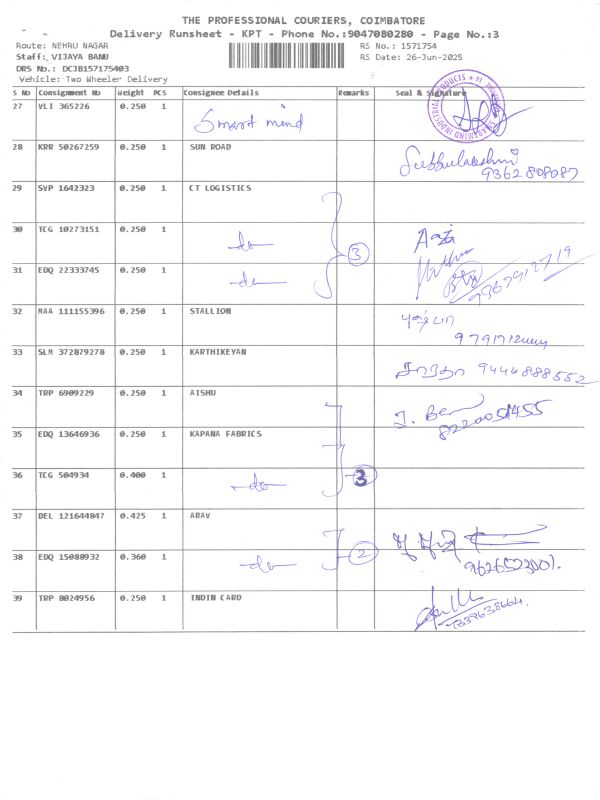 THE PROFESSIONAL COURIERS, COIMBATORE
Delivery Runsheet - KPT - Phone No.:9047080280 - Page No.:3
Route: NEHRU NAGAR
Staff: VIJAYA BANU
DRS No.: DCJB157175403
Vehicle: Two Wheeler Delivery
RS No.: 1571754
RS Date: 26-Jun-2025
S No Consignment No Weight PCS Consignee Details Remarks Seal & Signature
27 VLI 365226 0.250 1 Smart mind
28 KRR 50267259 0.250 1 SUN ROAD Subbulakshmi
9362808087
29 SVP 1642323 0.250 1 CT LOGISTICS
30 TCG 10273151 0.250 1 -do- 3
31 EDQ 22333745 0.250 1 -do- 9367912719
32 MAA 111155396 0.250 1 STALLION
33 SLM 372879278 0.250 1 KARTHIKEYAN சாரதா 9446888552
34 TRP 6909229 0.250 1 AISHU
35 EDQ 13646936 0.250 1 KAPANA FABRICS
36 TCG 504934 0.400 1 -do- 3
37 DEL 121644847 0.425 1 ARAV
38 EDQ 15088932 0.360 1 -do- 2
39 TRP 8024956 0.250 1 INDIN CARD